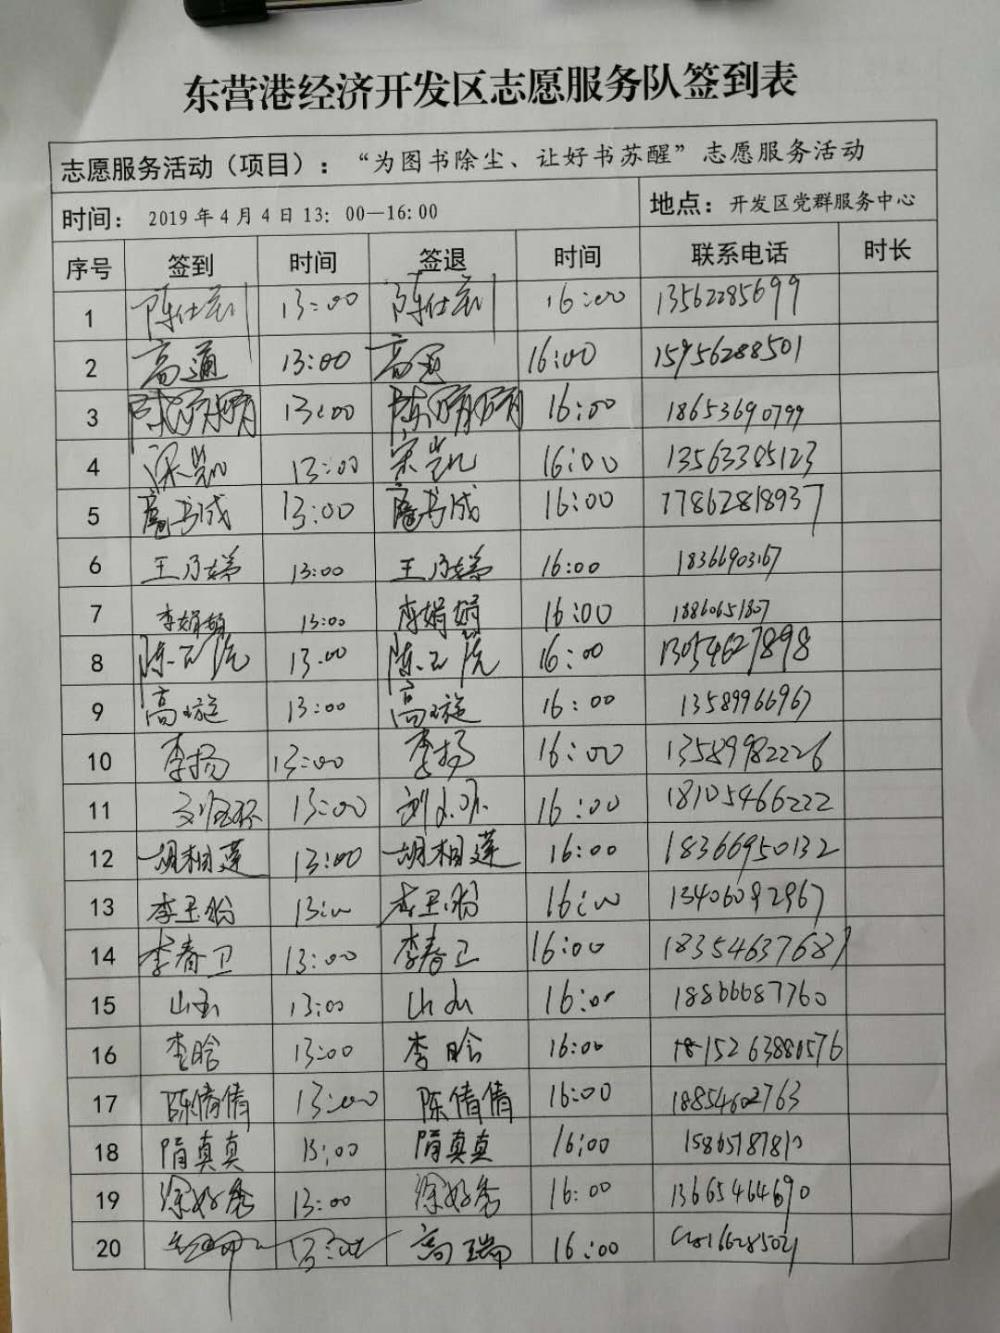 东营港经济开发区志愿服务队签到表
志愿服务活动（项目）：“为图书除尘、让好书苏醒”志愿服务活动
时间： 2019年4月4日13：00—16:00 地点：开发区党群服务中心
序号 签到 时间 签退 时间 联系电话 时长
1 13:00 16:00 13562285699
2 高通 13:00 16:00 15956288501
3 13:00 16:00 18653690799
4 13:00 16:00 13563385123
5 13:00 16:00 17862818937
6 王乃娣 13:00 王乃娣 16:00 18366903167
7 李娟娟 13:00 李娟娟 16:00
8 13:00 16:00 13054627898
9 高璇 13:00 高璇 16:00 13589966967
10 李扬 13:00 李扬 16:00 13589982226
11 13:00 16:00 18105466222
12 胡相莲 13:00 胡相莲 16:00 18366950132
13 13:00 16:00 13406092967
14 李春卫 13:00 李春卫 16:00 18354637687
15 13:00 16:00 18866687760
16 李晗 13:00 李晗 16:00 15263880576
17 陈倩倩 13:00 陈倩倩 16:00 18854602763
18 隋真真 13:00 隋真真 16:00
19 徐好秀 13:00 徐好秀 16:00 13665464690
20 高瑞 16:00